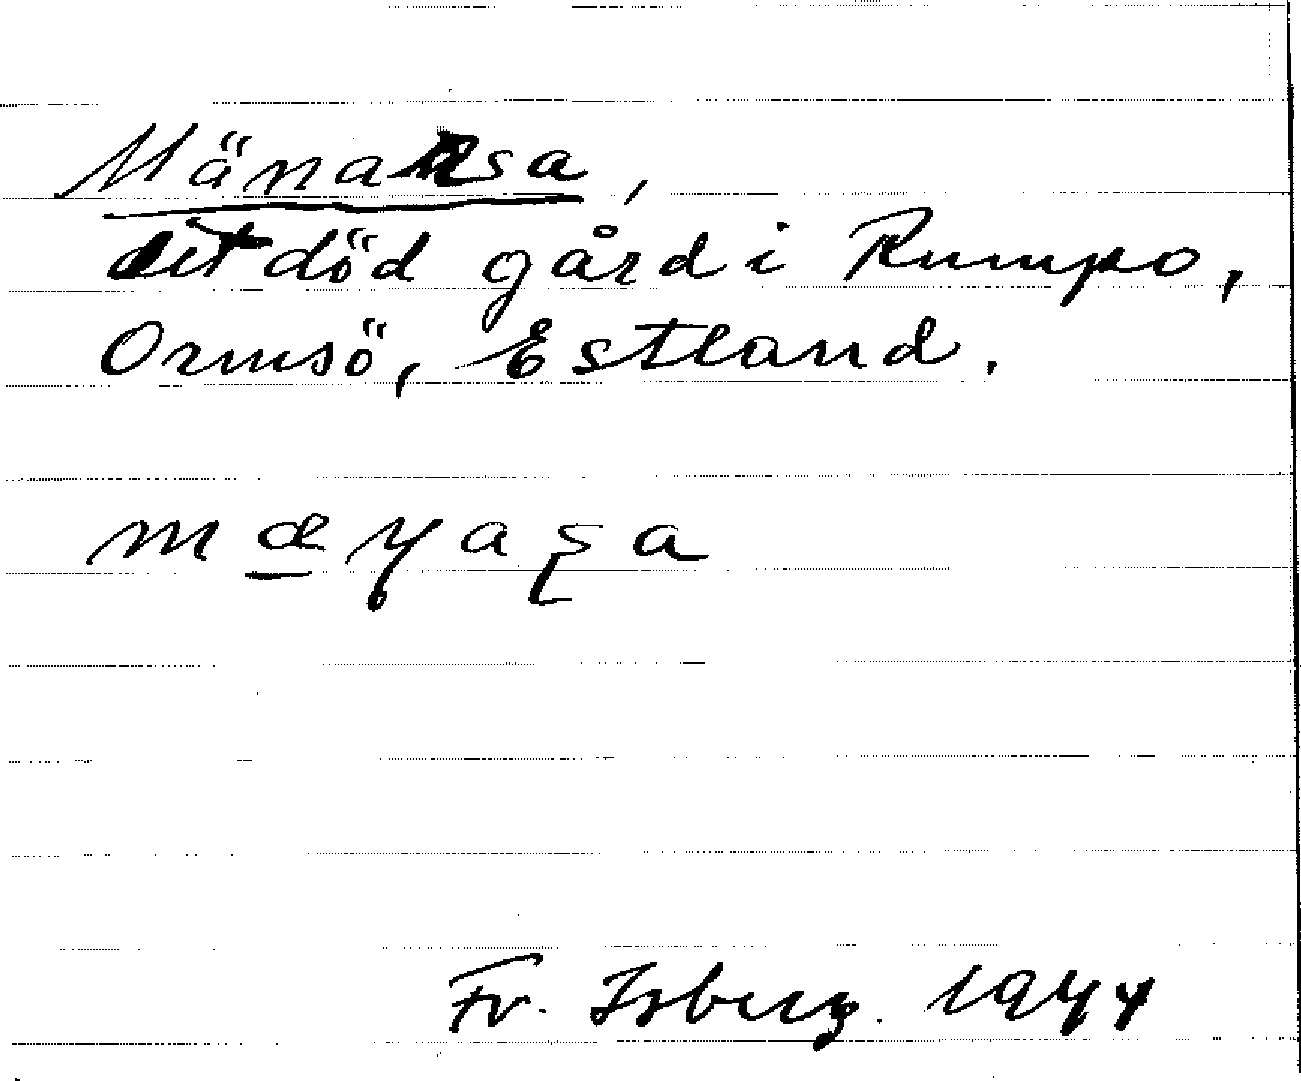 Mänarsa,
det död gård i Rumpo,
Ormsö, Estland.
mæɳaʂa
Fr. Isberg. 1944